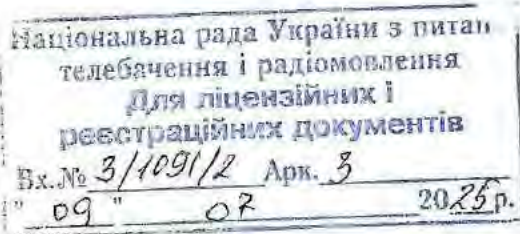 Національна рада України з питань
телебачення і радіомовлення
Для ліцензійних і
реєстраційних документів
Вх.№ 3/1091/2 Арк. 3
"09" 07 2025р.